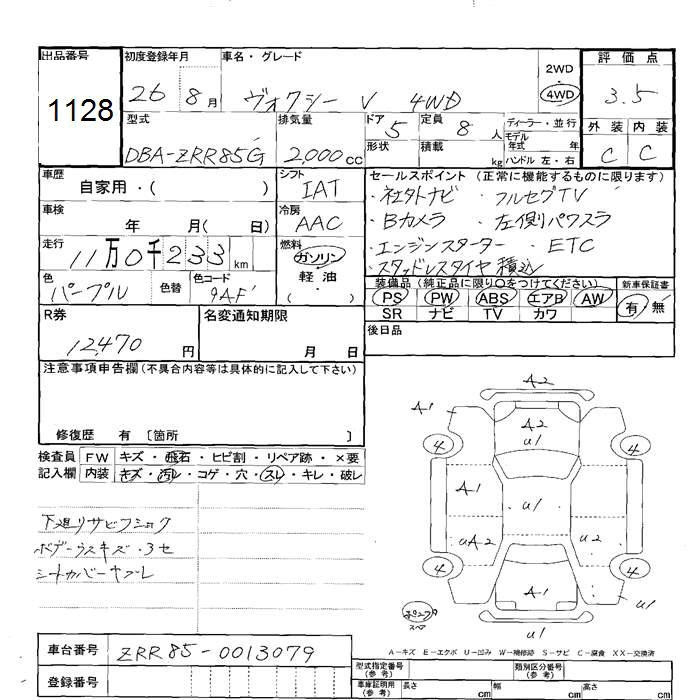 出品番号
1128
初度登録年月
26 8月
車名・グレード
ヴォクシー V 4WD
2WD
・
4WD
評価点
3.5
型式
DBA-ZRR85G
排気量
2,000cc
ドア 5
形状
定員 8人
積載 kg
ディーラー・並行
モデル年式 年
ハンドル 左・右
外装 内装
C C
車歴
自家用・( )
シフト
IAT
車検
年 月( 日)
冷房
AAC
走行
11万0千233km
燃料
ガソリン
軽油
( ・ )
色
パープル
色替
色コード
9AF
セールスポイント (正常に機能するものに限ります)
・社外ナビ ・フルセグTV
・Bカメラ ・左側パワスラ
・エンジンスターター ・ETC
・スタッドレスタイヤ積込
装備品(純正品に限り○をつけてください)
PS PW ABS エアB AW
SR ナビ TV カワ
新車保証書
有 無
R券
12,470円
名変通知期限
月 日
後日品
注意事項申告欄(不具合内容等は具体的に記入して下さい)
修復歴 有 〔箇所 〕
検査員記入欄
FW キズ・飛石・ヒビ割・リペア跡・×要
内装 キズ・汚レ・コゲ・穴・スレ・キレ・破レ
下廻りサビフショク
ボデーウスキズ・3セ
シートカバーヤブレ
A2
A1
A2
U1
4 4
A1
U1
UA2
U2
4 4
A1
U1
U1
スペア
A-キズ E-エクボ U-凹み W-補修跡 S-サビ C-腐食 XX-交換済
車台番号
ZRR85-0013079
登録番号
型式指定番号(参考)
類別区分番号(参考)
車庫証明用(参考)
長さ cm
幅 cm
高さ cm